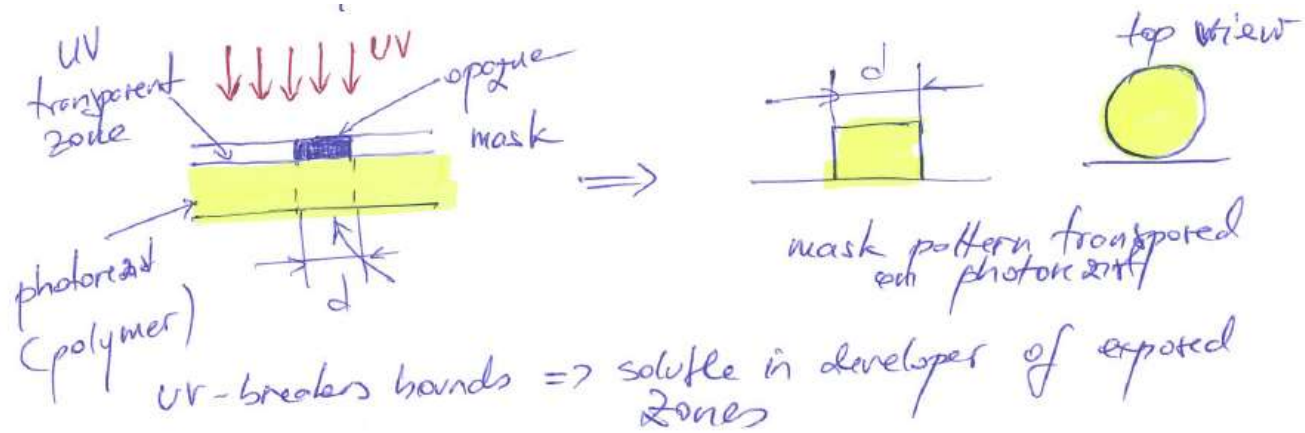 UV
transparent
zone
UV
opaque
mask
photoresist
(polymer)
d
d
top view
mask pattern transposed
on photoresist
UV - breakes bounds => soluble in developer of exposed
zones